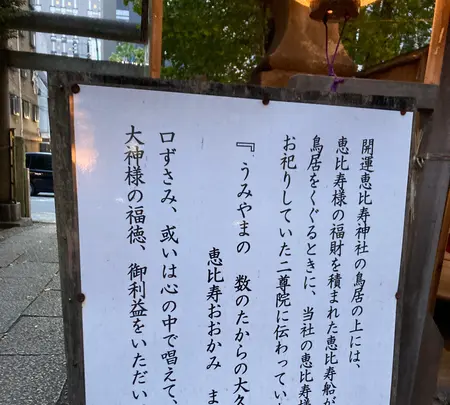 開運恵比寿神社の鳥居の上には、
恵比寿様の福財を積まれた恵比寿船が
鳥居をくぐるときに、当社の恵比寿様
お祀りしていた二尊院に伝わってい
『うみやまの 数のたからの大久
恵比寿おおかみ ま
口ずさみ、或いは心の中で唱えて、
大神様の福徳、御利益をいただい